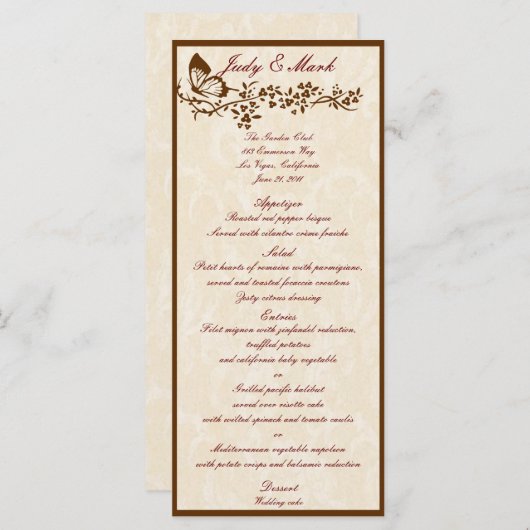 Judy & Mark
The Garden Club
813 Emmerson Way
Las Vegas, California
June 21, 2011
Appetizer
Roasted red pepper bisque
Served with cilantro crème fraiche
Salad
Petit hearts of romaine with parmigiano,
served and toasted focaccia croutons
Zesty citrus dressing
Entries
Filet mignon with zinfandel reduction,
truffled potatoes
and california baby vegetable
or
Grilled pacific halibut
served over risotto cake
with wilted spinach and tomato caulis
or
Mediterranean vegetable napoleon
with potato crisps and balsamic reduction
Dessert
Wedding cake